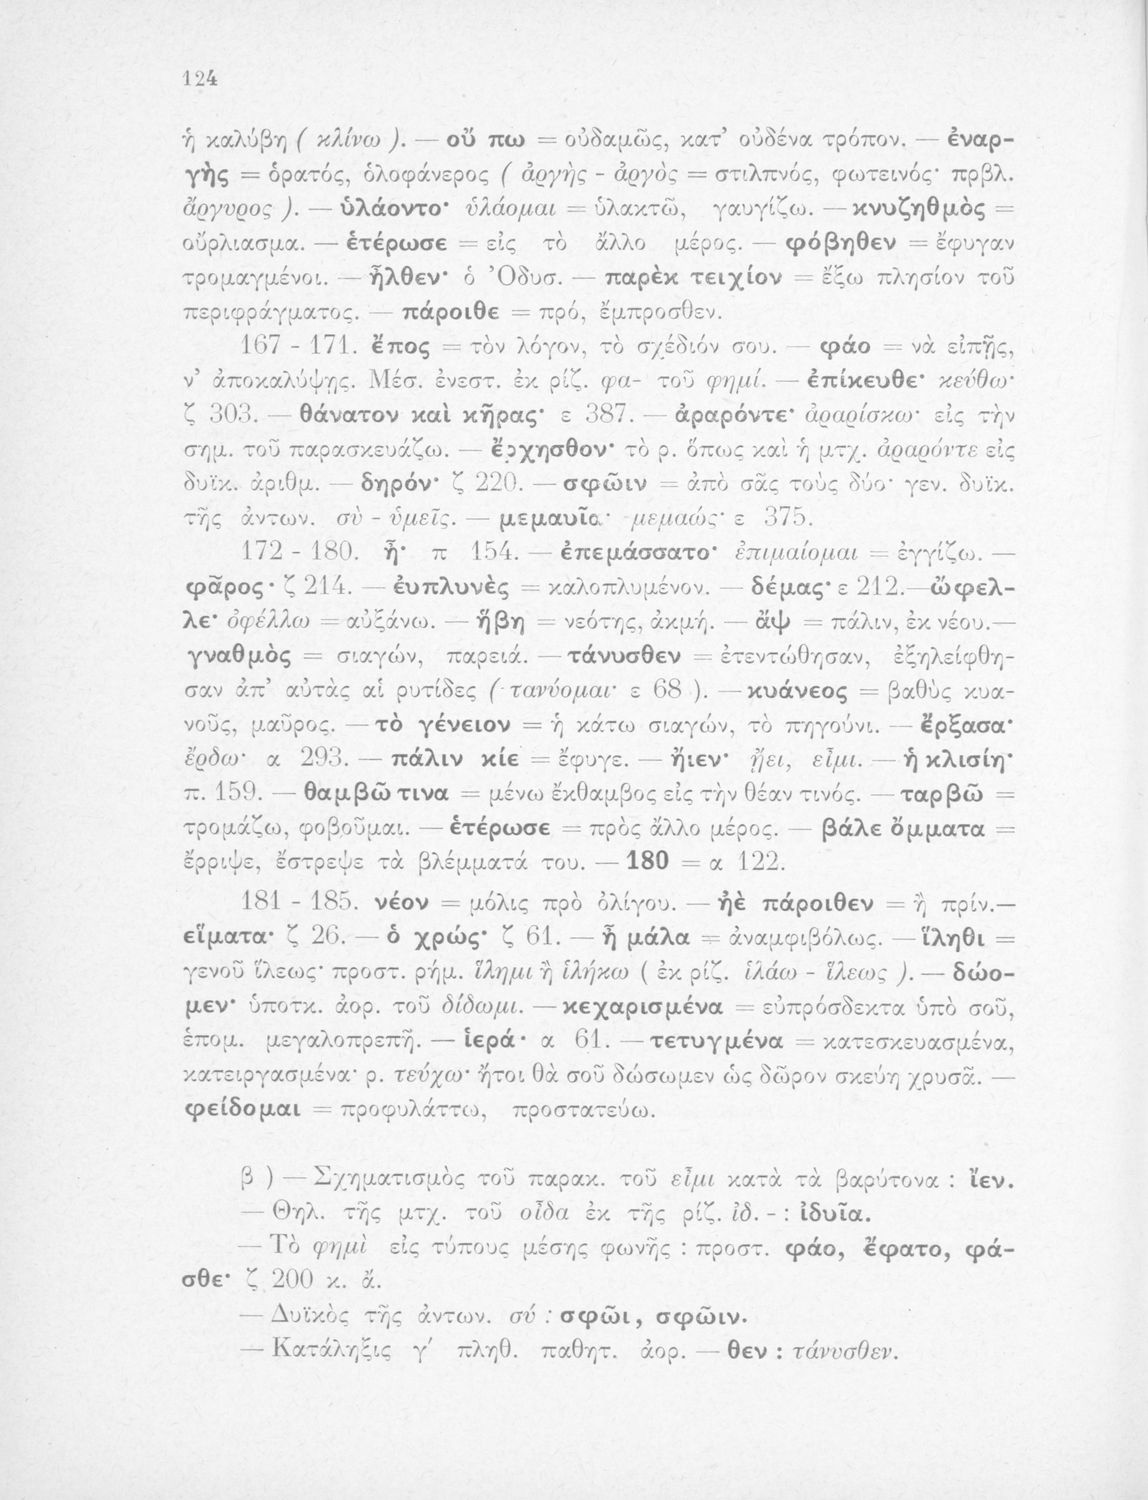 124
ἡ καλύβη ( κλίνω ). — οὔ πω = οὐδαμῶς, κατ’ οὐδένα τρόπον. — ἐναρ-
γὴς = ὁρατός, ὁλοφάνερος ( ἀργὴς - ἀργὸς = στιλπνός, φωτεινός· πρβλ.
ἄργυρος ). — ὑλάοντο· ὑλάομαι = ὑλακτῶ, γαυγίζω. — κνυζηθμὸς =
οὔρλιασμα. — ἑτέρωσε = εἰς τὸ ἄλλο μέρος. — φόβηθεν = ἔφυγαν
τρομαγμένοι. — ἦλθεν· ὁ Ὀδυσ. — παρὲκ τειχίον = ἔξω πλησίον τοῦ
περιφράγματος. — πάροιθε = πρό, ἔμπροσθεν.
167 - 171. ἔπος = τὸν λόγον, τὸ σχέδιόν σου. — φάο = νὰ εἰπῇς,
ν’ ἀποκαλύψῃς. Μέσ. ἐνεστ. ἐκ ρίζ. φα- τοῦ φημί. — ἐπίκευθε· κεύθω·
ζ 303. — θάνατον καὶ κῆρας· ε 387. — ἀραρόντε· ἀραρίσκω· εἰς τὴν
σημ. τοῦ παρασκευάζω. — ἔρχησθον· τὸ ρ. ὅπως καὶ ἡ μτχ. ἀραρόντε εἰς
δυϊκ. ἀριθμ. — δηρόν· ζ 220. — σφῶιν = ἀπὸ σᾶς τοὺς δύο· γεν. δυϊκ.
τῆς ἀντων. σὺ - ὑμεῖς. — μεμαυῖα· μεμαώς· ε 375.
172 - 180. ἦ· π 154. — ἐπεμάσσατο· ἐπιμαίομαι = ἐγγίζω. —
φᾶρος· ζ 214. — ἐυπλυνὲς = καλοπλυμένον. — δέμας· ε 212.—ὤφελ-
λε· ὀφέλλω = αὐξάνω. — ἥβη = νεότης, ἀκμή. — ἂψ = πάλιν, ἐκ νέου.—
γναθμὸς = σιαγών, παρειά. — τάνυσθεν = ἐτεντώθησαν, ἐξηλείφθη-
σαν ἀπ’ αὐτὰς αἱ ρυτίδες ( τανύομαι· ε 68 ). — κυάνεος = βαθὺς κυα-
νοῦς, μαῦρος. — τὸ γένειον = ἡ κάτω σιαγών, τὸ πηγούνι. — ἔρξασα·
ἔρδω· α 293. — πάλιν κίε = ἔφυγε. — ἤιεν· ᾔει, εἶμι. — ἡ κλισίη·
π. 159. — θαμβῶ τινα = μένω ἔκθαμβος εἰς τὴν θέαν τινός. — ταρβῶ =
τρομάζω, φοβοῦμαι. — ἑτέρωσε = πρὸς ἄλλο μέρος. — βάλε ὄμματα =
ἔρριψε, ἔστρεψε τὰ βλέμματά του. — 180 = α 122.
181 - 185. νέον = μόλις πρὸ ὀλίγου. — ἠὲ πάροιθεν = ἢ πρίν.—
εἵματα· ζ 26. — ὁ χρώς· ζ 61. — ἦ μάλα = ἀναμφιβόλως. — ἵληθι =
γενοῦ ἵλεως· προστ. ρήμ. ἵλημι ἢ ἱλήκω ( ἐκ ρίζ. ἱλάω - ἵλεως ). — δώο-
μεν· ὑποτκ. ἀορ. τοῦ δίδωμι. — κεχαρισμένα = εὐπρόσδεκτα ὑπὸ σοῦ,
ἑπομ. μεγαλοπρεπῆ. — ἱερά· α 61. — τετυγμένα = κατεσκευασμένα,
κατειργασμένα· ρ. τεύχω· ἤτοι θὰ σοῦ δώσωμεν ὡς δῶρον σκεύη χρυσᾶ. —
φείδομαι = προφυλάττω, προστατεύω.
β ) — Σχηματισμὸς τοῦ παρακ. τοῦ εἶμι κατὰ τὰ βαρύτονα : ἴεν.
— Θηλ. τῆς μτχ. τοῦ οἶδα ἐκ τῆς ρίζ. ἰδ. - : ἰδυῖα.
— Τὸ φημὶ εἰς τύπους μέσης φωνῆς : προστ. φάο, ἔφατο, φά-
σθε· ζ 200 κ. ἄ.
— Δυϊκὸς τῆς ἀντων. σύ : σφῶι, σφῶιν.
— Κατάληξις γ΄ πληθ. παθητ. ἀορ. — θεν : τάνυσθεν.